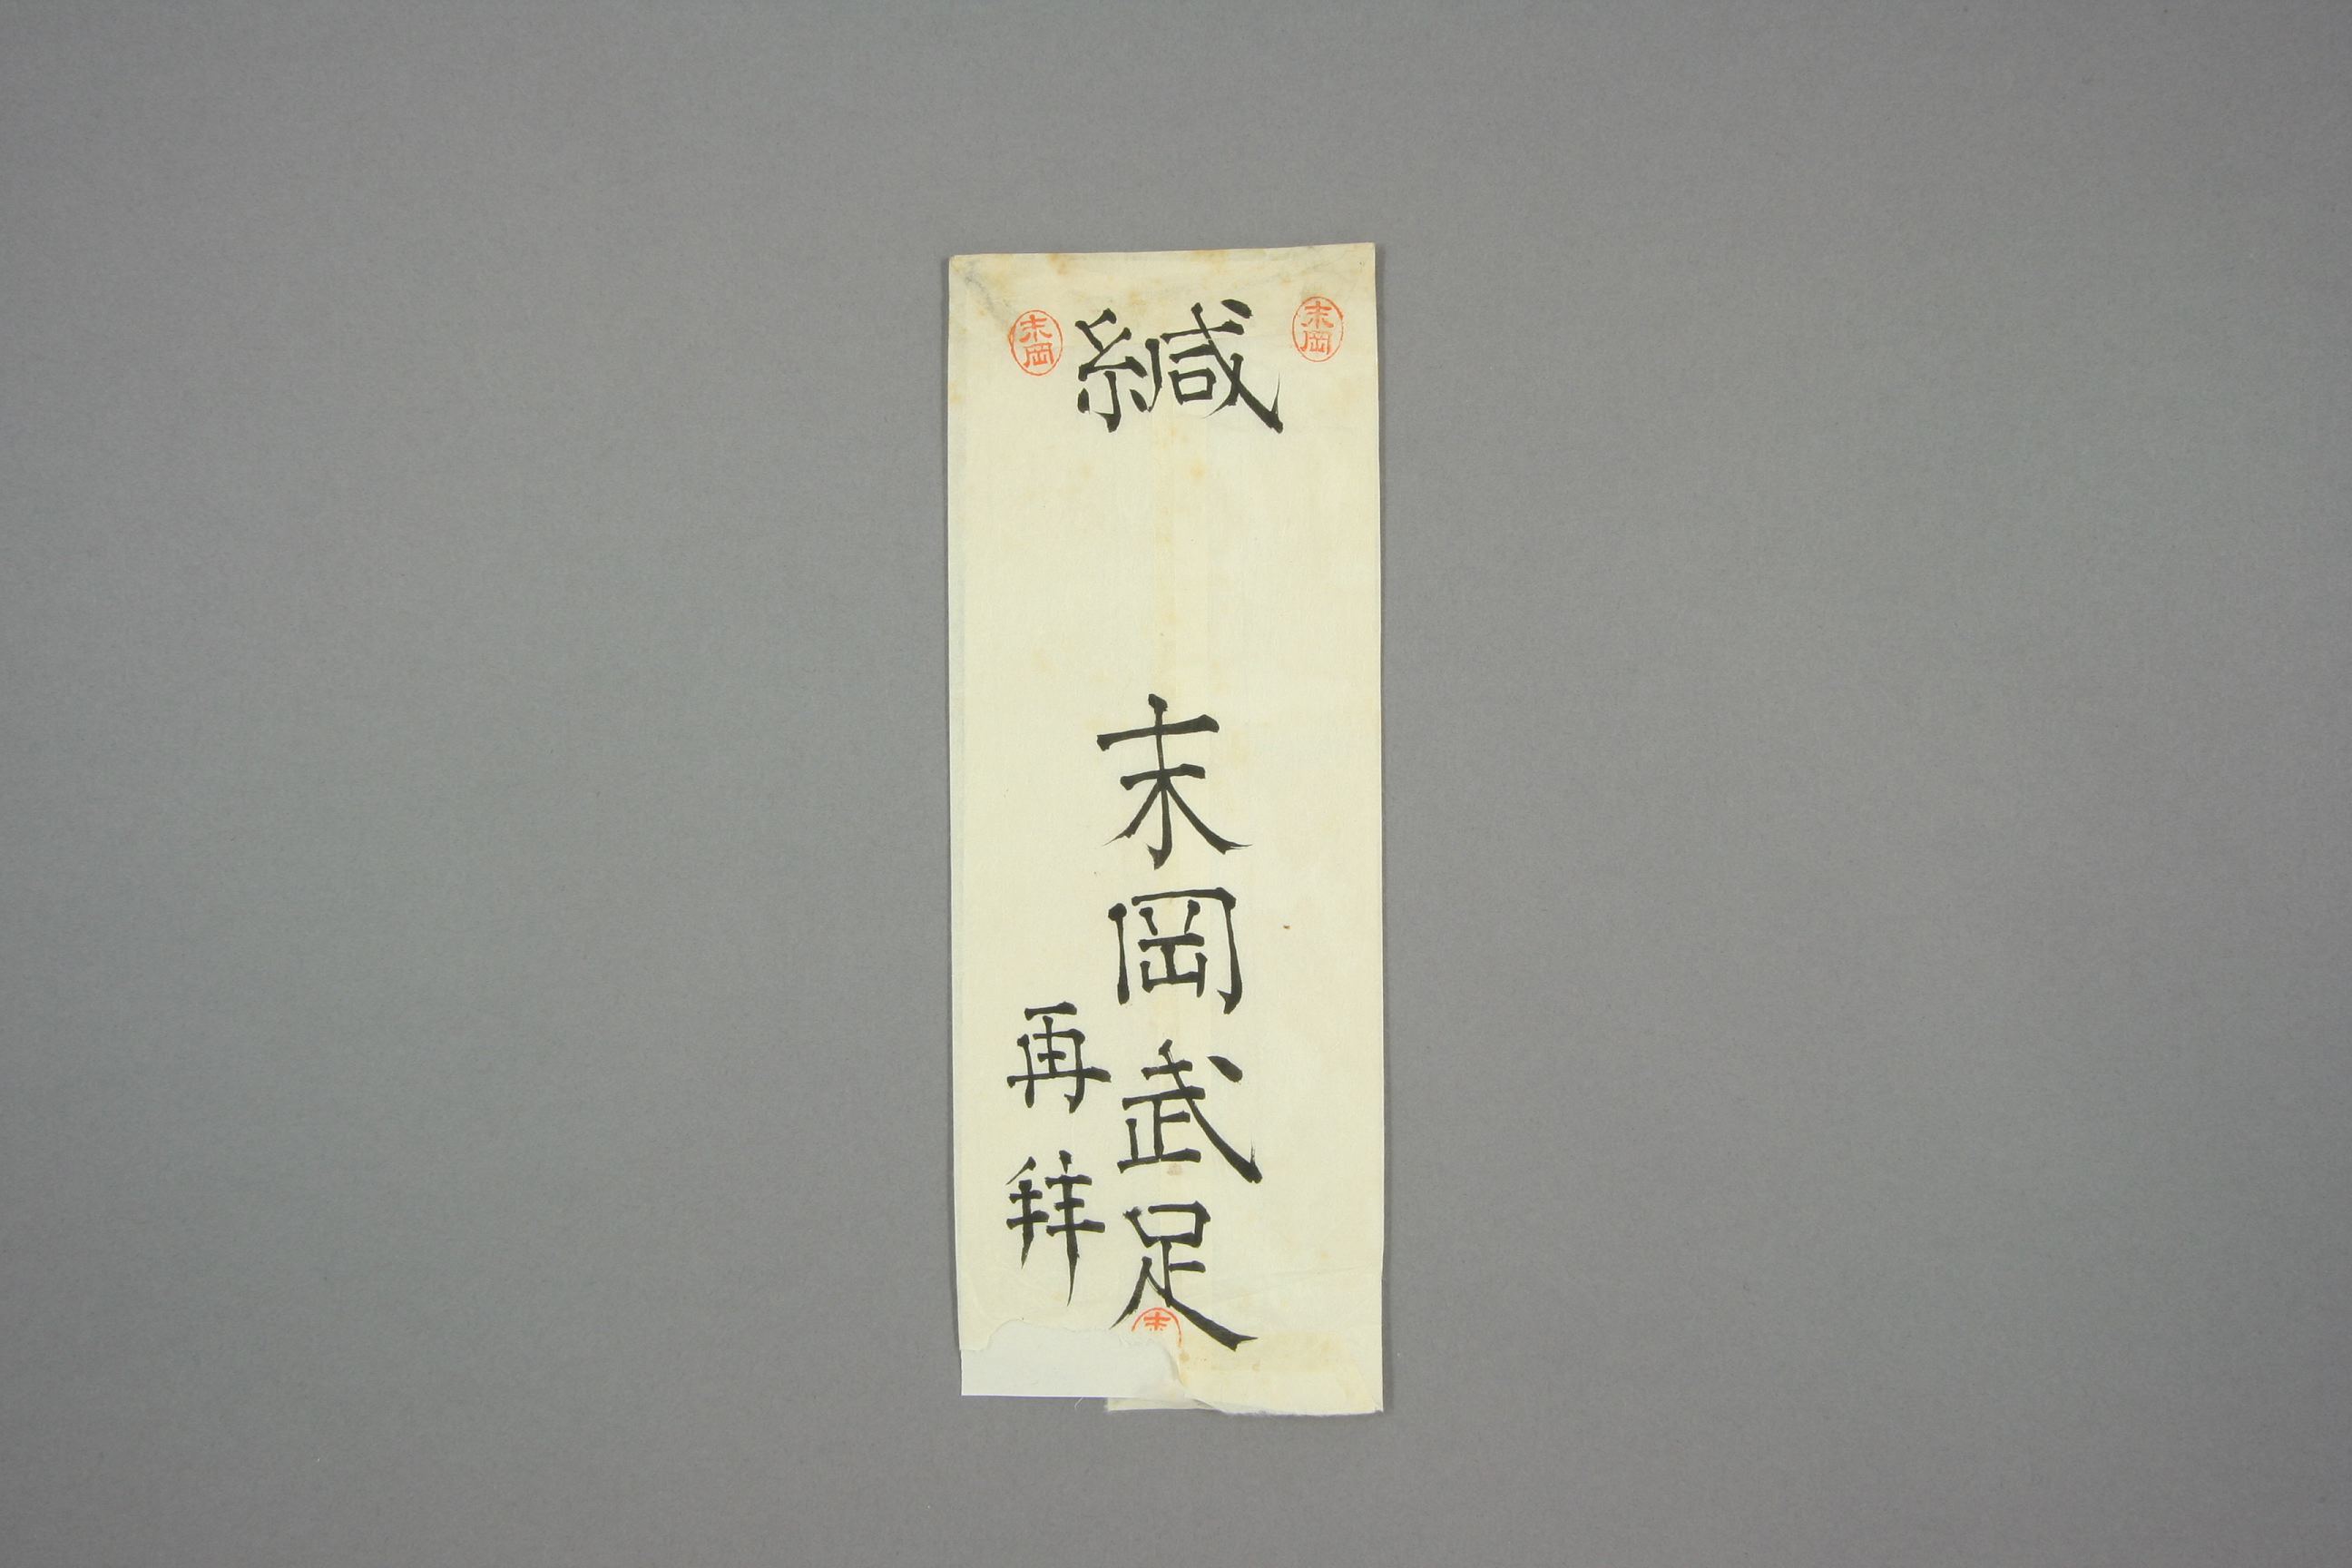 緘
末岡武足
再拝
末岡
末岡
末